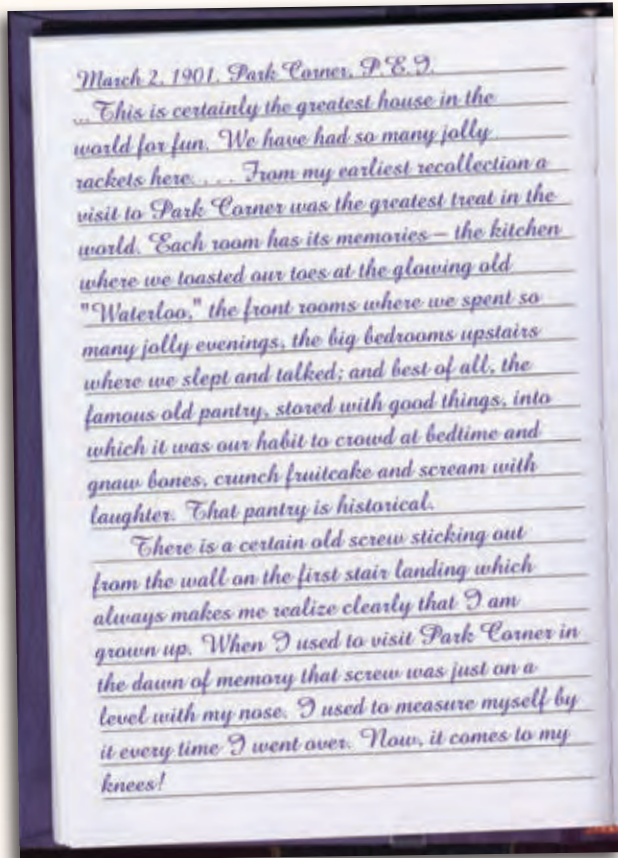 March 2, 1901. Park Corner, P.E.I.
... This is certainly the greatest house in the
world for fun. We have had so many jolly
rackets here. . . . From my earliest recollection a
visit to Park Corner was the greatest treat in the
world. Each room has its memories – the kitchen
where we toasted our toes at the glowing old
"Waterloo," the front rooms where we spent so
many jolly evenings, the big bedrooms upstairs
where we slept and talked; and best of all, the
famous old pantry, stored with good things, into
which it was our habit to crowd at bedtime and
gnaw bones, crunch fruitcake and scream with
laughter. That pantry is historical.
There is a certain old screw sticking out
from the wall on the first stair landing which
always makes me realize clearly that I am
grown up. When I used to visit Park Corner in
the dawn of memory that screw was just on a
level with my nose. I used to measure myself by
it every time I went over. Now, it comes to my
knees!